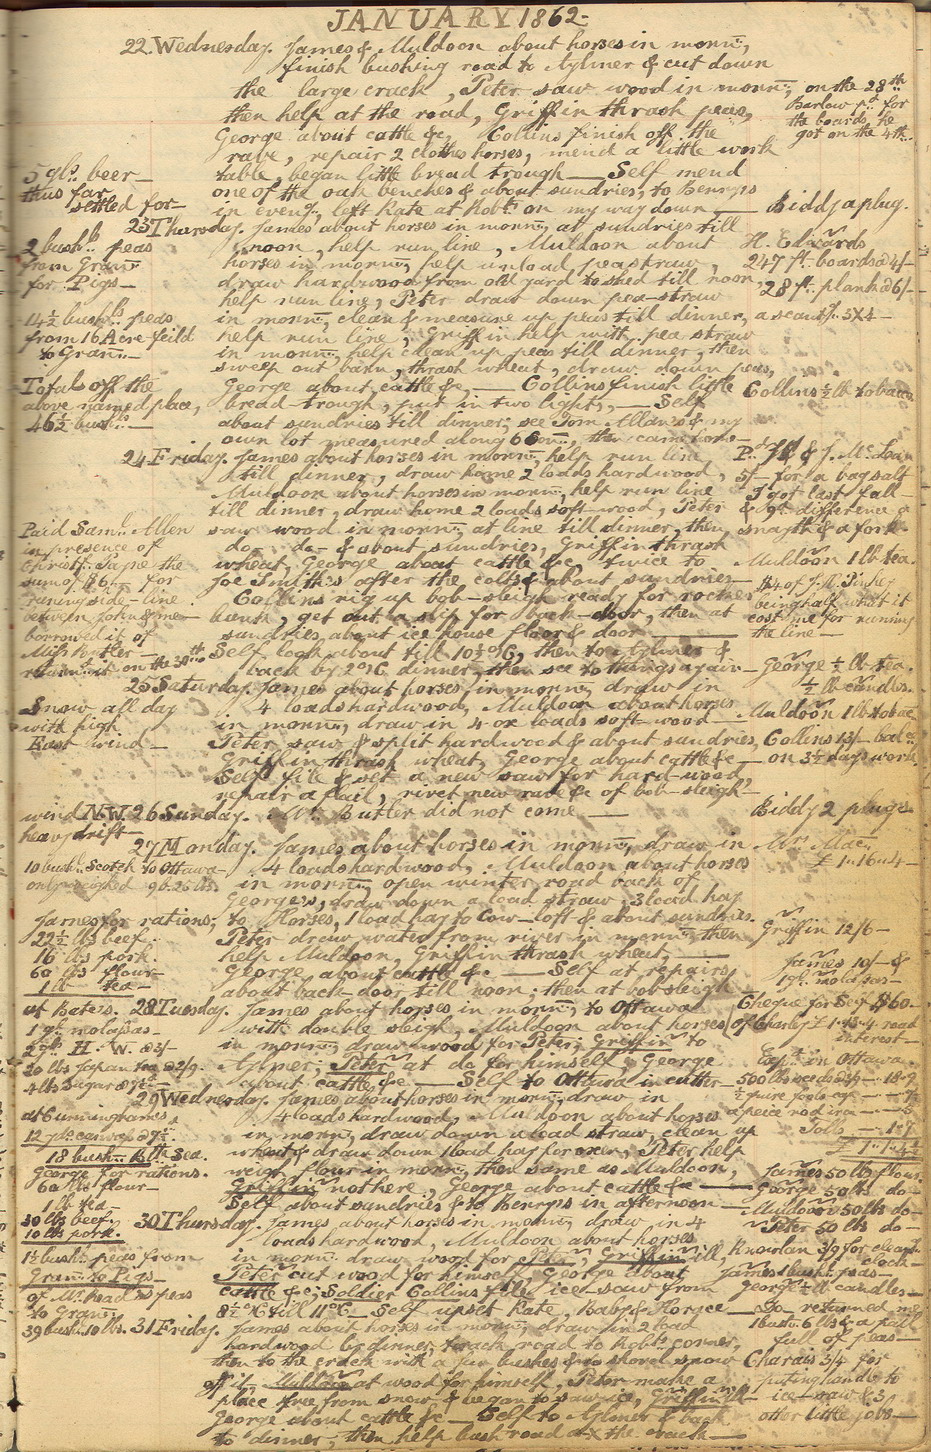 JANUARY 1862-
22. Wednesday. James & Muldoon about horses in mornn:,
finish bushing road to Aylmer & cut down
the large crack, Peter saw wood in mornn:, on the 28th
then help at the road, Griffin thrash peas, Barlow pd. for
George about cattle &c, Collins finish off the the boards he
rave, repair 2 clothes horses, mend a little work got on the 4th.
5 gls. beer— table, began little bread trough — Self mend
thus far one of the oak benches & about sundries, to Benrys
settled for— in eveng., left Kate at Robts. on my way down, — Biddy a plug.
23 Thursday. James about horses in mornn:, at sundries till
2 bushls. peas noon, help run line, Muldoon about H. Edwards
from Grann: horses in mornn:, help unload peastraw, 247 ft. boards @ 4/-
for Pigs— draw hardwood from old yard to shed till noon, 28 ft. plank @ 6/-
help run line, Peter draw down pea-straw
14½ bushls. peas in mornn:, clean & measure up peas till dinner, a scantg. 3X4—
from 16 Acre feild help run line, Griffin help with pea straw
to Grann:— in mornn:, help clean up peas till dinner, then
sweep out barn, thrash wheat, draw down peas,
Totals off the George about cattle &c, — Collins finish little Collins ½ lb tobacco
above named place, bread-trough, put in two lights, — Self
46½ bushls.— about sundries till dinner, see Tom Allan's & my
own lot measured along 6 Conn:, then came home—
24 Friday. James about horses in mornn:, help run line Pd. & J. McLean
till dinner, draw home 2 loads hardwood, 5/- for a bag salt
Muldoon about horses in mornn:, help run line I got last fall
till dinner, draw home 2 loads soft-wood, Peter & difference
Paid Saml. Allen saw wood in mornn:, at line till dinner, then snayth & a fork
in presence of do— do— & about sundries, Griffin thrash
Christr. Sapse the wheat, George about cattle &c, twice to Muldoon 1 lb tea.
sum of $6/- for Joe Smith's after the colts & about sundries— $4 of
runing side-line Collins rig up bob-sleigh ready for rocker being half what it
between John & me bunk, get out a slip for back-door, then at cost me for running
borrowed it of sundries, about ice house floor & door — the line—
Miss Butler— Self look about till 10½ o'C, then to Aylmer &
returnd. it on the 30th back by 2 o'C dinner, then see to things again— George ½ lb tea.
25 Saturday. James about horses in mornn:, draw in ½ lb candles.
Snow all day 4 loads hardwood, Muldoon about horses
with high in mornn:, draw in 4 ox loads soft wood— Muldoon 1 lb tobac
East wind— Peter saw & split hardwood & about sundries, Collins 13/- bal:
Griffin thrash wheat, George about cattle &c— on 3½ days work
Self file & set a new saw for hard-wood,
repair a flail, rivet new rave &c of bob-sleigh—
wind N.W. 26 Sunday. Mr. Butler did not come — Biddy 2 plugs
heavy drift—
27 Monday. James about horses in mornn:, draw in Mr. Mac
10 bushls. Scotch to Ottawa 4 loads hardwood, Muldoon about horses £1"16"4—
only weighed 9 b. 25 lbs. in mornn:, open winter road back of
George's, draw down a load straw, 3 load hay
James for rations, to Horses, 1 load hay to Cow-loft & about sundries.
22½ lbs beef. Peter draw water from river in mornn:, then Griffin 12/6—
16 lbs pork. help Muldoon, Griffin thrash wheat, —
60 lbs flour— George about cattle &c — Self at repairs James 10/- &
1 lb tea— about back door till noon, then at bob sleigh 1 gl. molassas—
at Baters. 28 Tuesday. James about horses in mornn:, to Ottawa Cheque for $60—
1 gl. molassas— with double sleigh, Muldoon about horses of Charley £1"13"4 road
2 gls. H. W. @ 3/- in mornn:, draw wood for Peter, Griffin to interest—
20 lbs Japan tea @ 2/9. Aylmer, Peter at do for himself, George Expd. in Ottawa
4 lbs Sugar @ about cattle &c — Self to Ottawa in cutter— 500 lbs
29 Wednesday. James about horses in mornn:, draw in ½ quire fools cap
at Cunninghames 4 loads hardwood, Muldoon about horses a peice rod iron
12 yds. canvas @ 7½ in mornn:, draw down a load straw, clean up Tolls
18 bushls. Blk Sea. wheat & draw down 1 load hay for oxen, Peter help
George for rations. weigh flour in mornn:, then same as Muldoon, James 50 lbs flour.
60 lbs flour— Griffin not here, George about cattle &c — George 50 lbs do—
1 lb tea— Self about sundries & to Benrys in afternoon— Muldoon 50 lbs do—
30 lbs beef. 30 Thursday. James about horses in mornn:, draw in 4 Peter 50 lbs do—
10 lbs pork. loads hardwood, Muldoon about horses
1½ bushls. peas from in mornn:, draw wood for Peter, Griffin ill, Knowlan 3/9 for cleang.
Grann: to Pigs— Peter cut wood for himself, George about James 1 bushl. peas— clock—
of Mr. Read's peas cattle &c; Soldier Collins file ice-saw from George ½ lb candles—
to Grann: 8½ o'C till 11 o'C— Self upset Kate, Baby & Horace— Do returned me
39 bushls. 10 lbs. 31 Friday. James about horses in mornn:, draw in 2 load 1 bushl. 6 lbs & a pail
hardwood by dinner, track road to light corner, full of peas—
then to the crack with a few bushes & to shovel snow Charais 3/4 for
off it, Muldoon at wood for himself, Peter make a puting handle to
place free from snow, & began to saw ice, Griffin ill— ice-saw & 3
George about cattle &c — Self to Aylmer & back other little jobs—
to dinner, then help bush road at the crack—